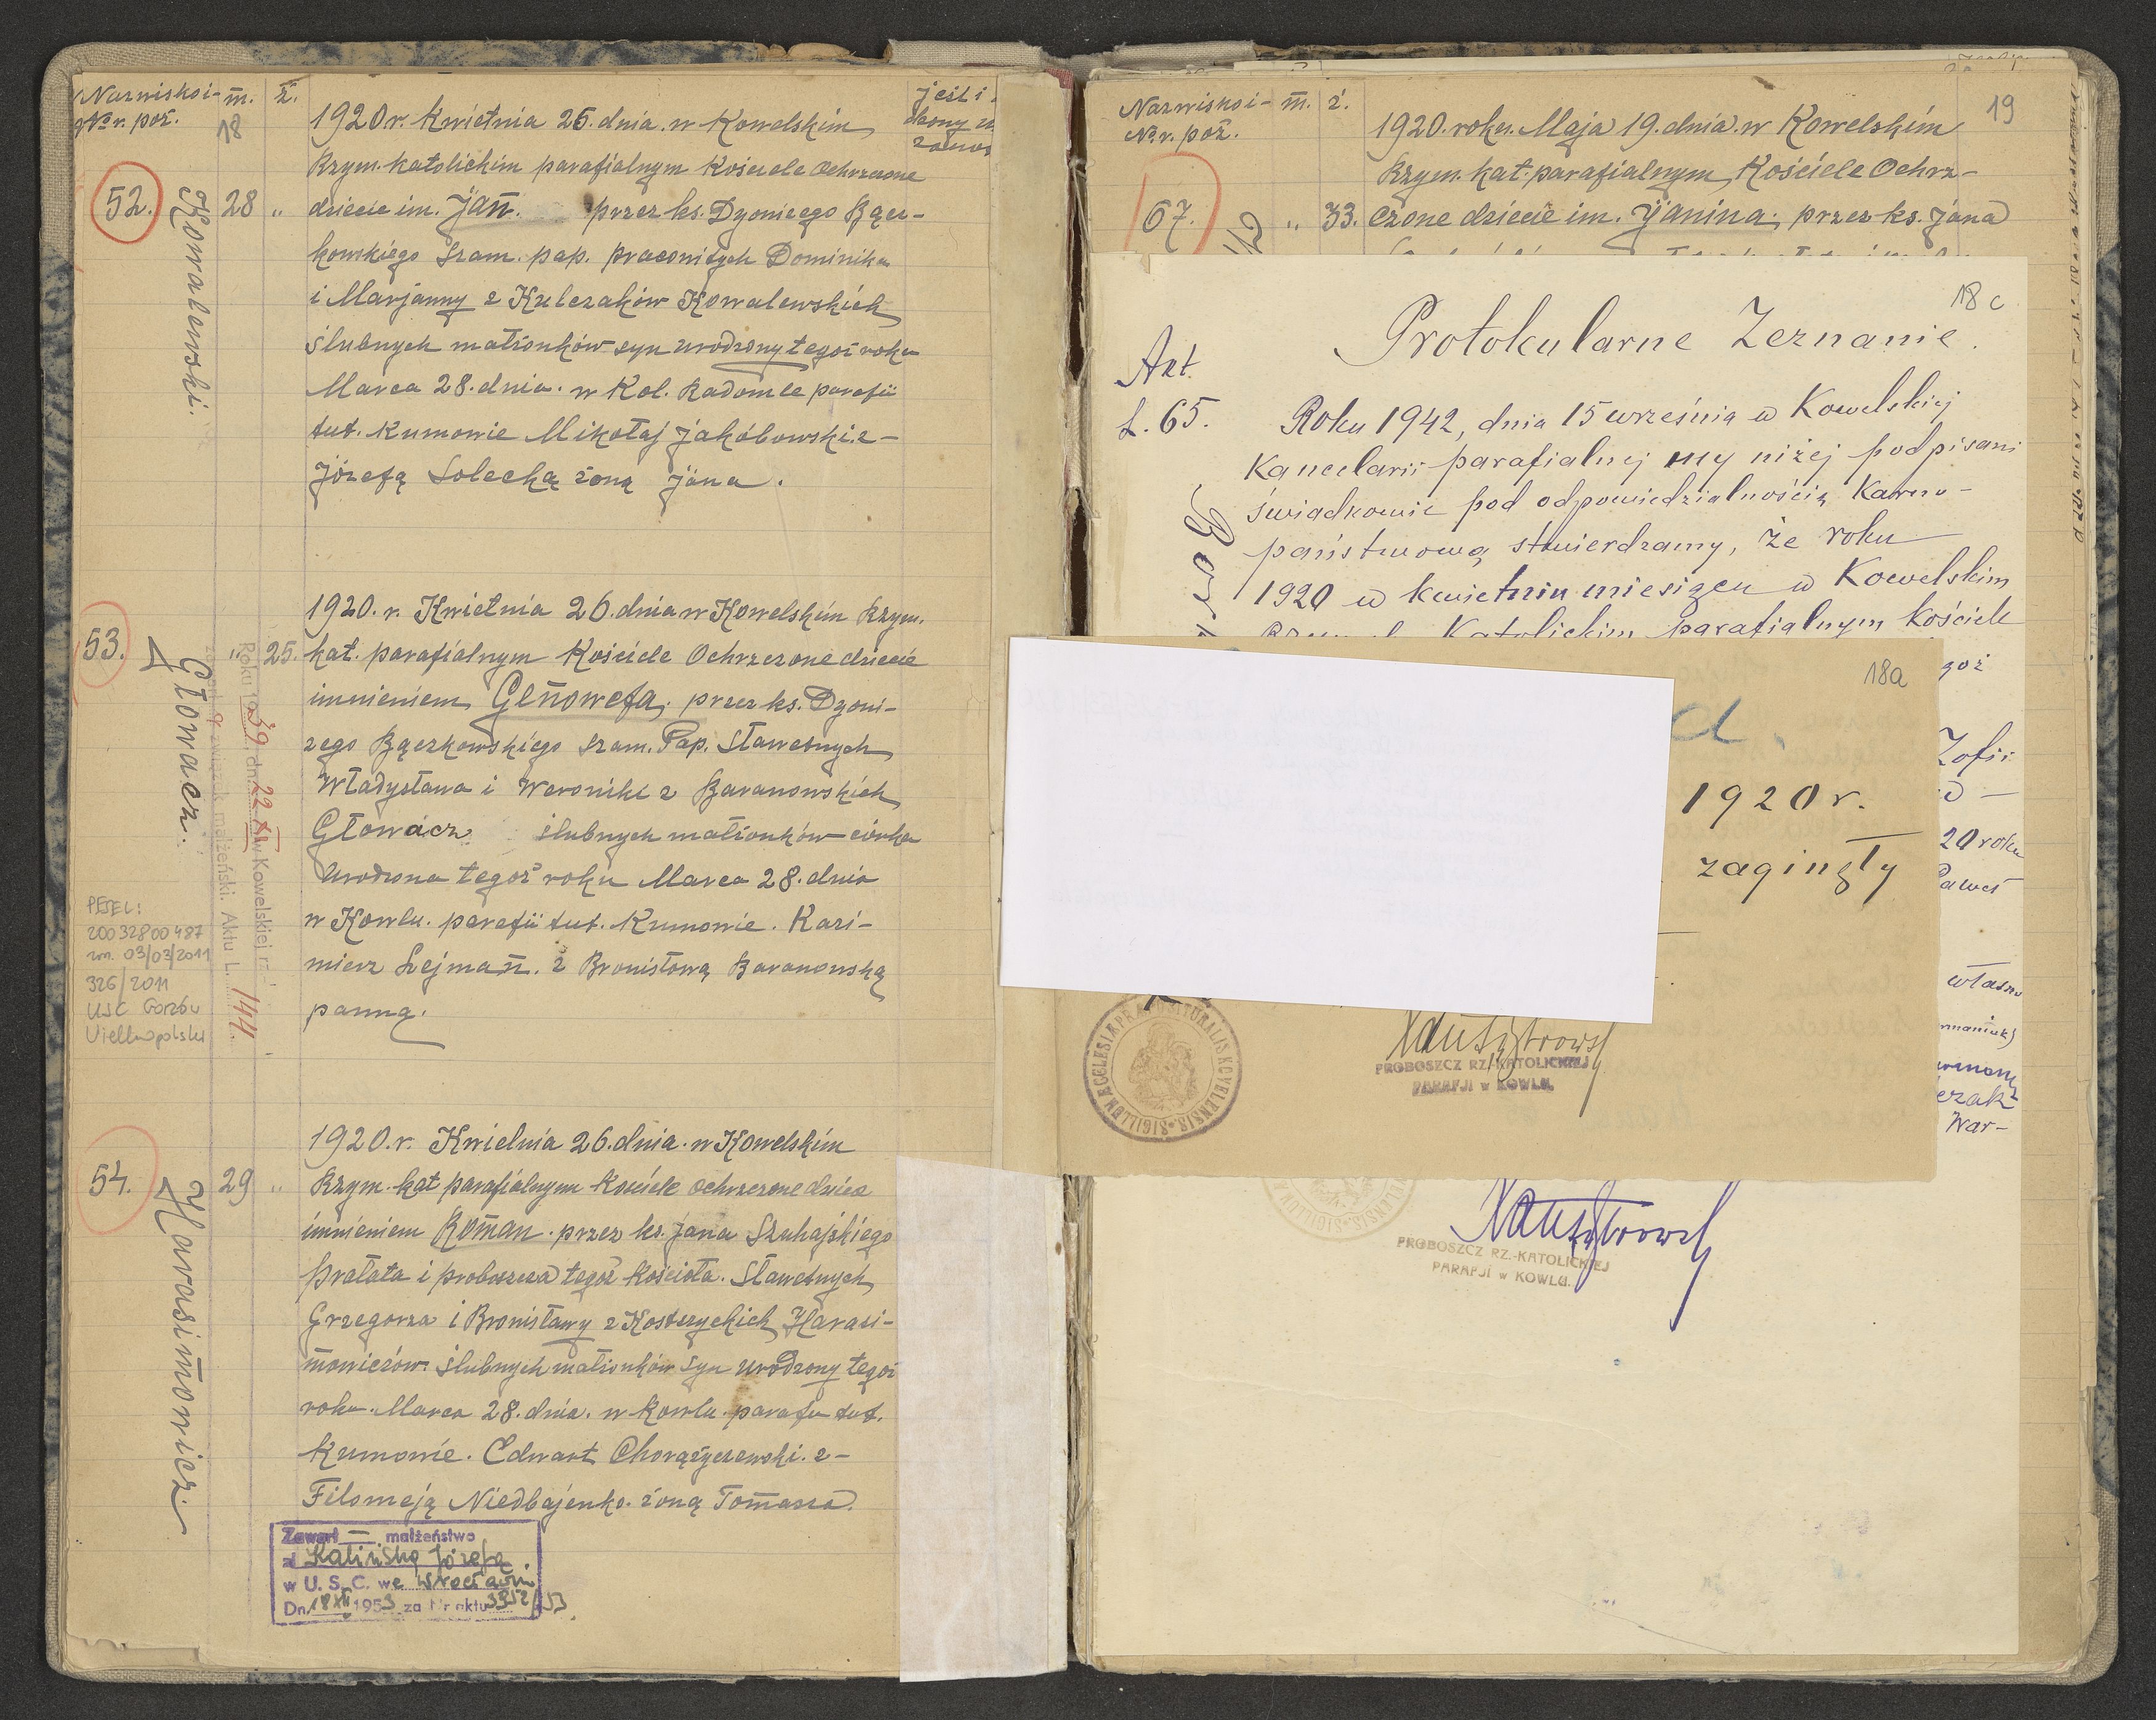 Nazwisko i- m. ż.
Nr. poż.
18
jest i
1920 r. Kwietnia 26. dnia. w Kowelskim
Rzym. katolickim parafialnym Kościele Ochrzczone
52. Kowalewski. 28 „ dziecie im. Jan. przez ks. Dyonizego Bącz-
kowskiego Szam. pap. pracowitych Dominika
i Marjanny z Kulczaków Kowalewskich
ślubnych małżonków syn urodzony tegoż roku
Marca 28. dnia. w Kol. Radomle parafii
tut. Kumowie Mikołaj Jakóbowski. z-
Józefą Solecką żoną Jana.
1920. r. Kwietnia 26. dnia w Kowelskim Rzym.
53. Głowacz. „ 25. kat. parafialnym Kościele Ochrzczone dziecie
imieniem Genowefa. przez ks. Dyoni-
zego Bączkowskiego Szam. Pap. Sławetnych
Władysława i Weroniki z Baranowskich
Głowacz. ślubnych małżonków córka
urodzona tegoż roku Marca 28. dnia
w Kowlu. parafii tut. Kumowie. Kazi-
mierz Lejman. z Bronisławą Baranowską
panną.
Roku 1939 dn. 22 XI w Kowelskiej
związek małżeński. Aktu L. 144.
PESEL:
20032800487
zm. 03/03/2011
326/2011
USC Gorzów
Wielkopolski
1920. r. Kwietnia 26. dnia. w Kowelskim
54. Harasimowicz. 29 „ Rzym. kat parafialnym Kościele ochrzczone dziecie
imieniem Roman. przez ks. Jana Szuhajskiego
prałata i proboszcza tegoż Kościoła. Sławetnych
Grzegorza i Bronisławy z Kostrzyckich Harasi-
mowiczów. ślubnych małżonków syn urodzony tegoż
roku. Marca 28. dnia. w Kowlu. parafii tut.
Kumowie. Edwart Chorążyczewski. z-
Filomeją Niedbajenko. żoną Tomasza.
Zawarł — małżeństwo
z Kalińską Józefą.
w U. S. C. we Wrocławiu
Dn. 18 XII 1953 za Nr aktu 3352/53
Nazwisko i- m. ż.
Nr. poż.
19
1920. roku. Maja 19. dnia. w Kowelskim
Rzym. kat. parafialnym Kościele Ochrz-
67. „ 33. czone dziecie im. Janina. przez ks. Jana
18 c
Protokularne Zeznanie.
Akt.
L. 65.
Roku 1942, dnia 15 września w Kowelskiej
Kancelarii parafialnej my niżej podpisani
świadkowie pod odpowiedzialnością Karno-
państwową stwierdzamy, że roku
1920 w kwietniu miesiącu w Kowelskim
Katolickim parafialnym kościele
goż
Zofii
20 roku
Paweł
własno
czak
War-
18a
d.
1920 r.
zaginęły
SIGILLUM ECCLESIAE PRAEPOSITURALIS KOVELENSIS
PROBOSZCZ RZ.-KATOLICKIEJ
PARAFJI w KOWLU.
PROBOSZCZ RZ.-KATOLICKIEJ
PARAFJI w KOWLU.